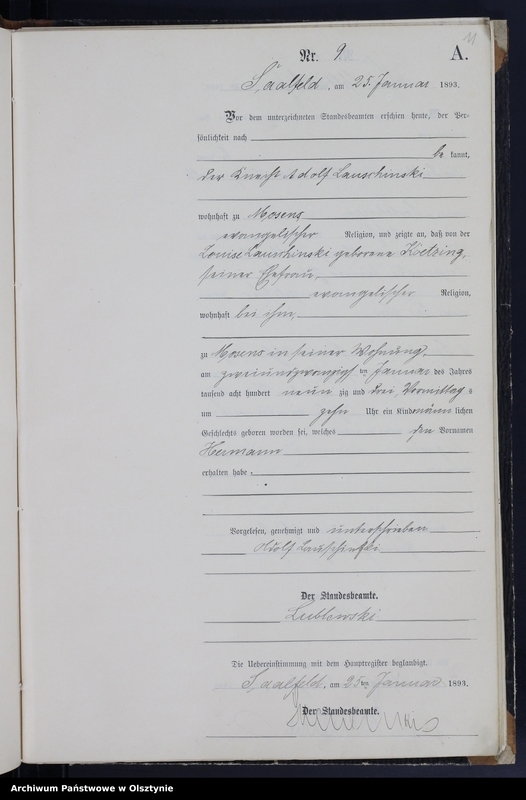 11
Nr. 9.
A.
Saalfeld, am 25. Januar 1893.
Vor dem unterzeichneten Standesbeamten erschien heute, der Per-
sönlichkeit nach
be kannt,
der Knecht Adolf Lauschinski
wohnhaft zu Mosens
evangelischer Religion, und zeigte an, daß von der
Louise Lauschinski geborene
seiner Ehefrau,
evangelischer Religion,
wohnhaft bei ihm,
zu Mosens in seiner Wohnung,
am zweiundzwanzigsten Januar des Jahres
tausend acht hundert neun zig und drei Vormittags
um zehn Uhr ein Kind männlichen
Geschlechts geboren worden sei, welches den Vornamen
Hermann
erhalten habe.
Vorgelesen, genehmigt und unterschrieben
Adolf Lauschinski
Der Standesbeamte.
Lublewski
Die Uebereinstimmung mit dem Hauptregister beglaubigt.
Saalfeld, am 25ten Januar 1893.
Der Standesbeamte.
Archiwum Państwowe w Olsztynie